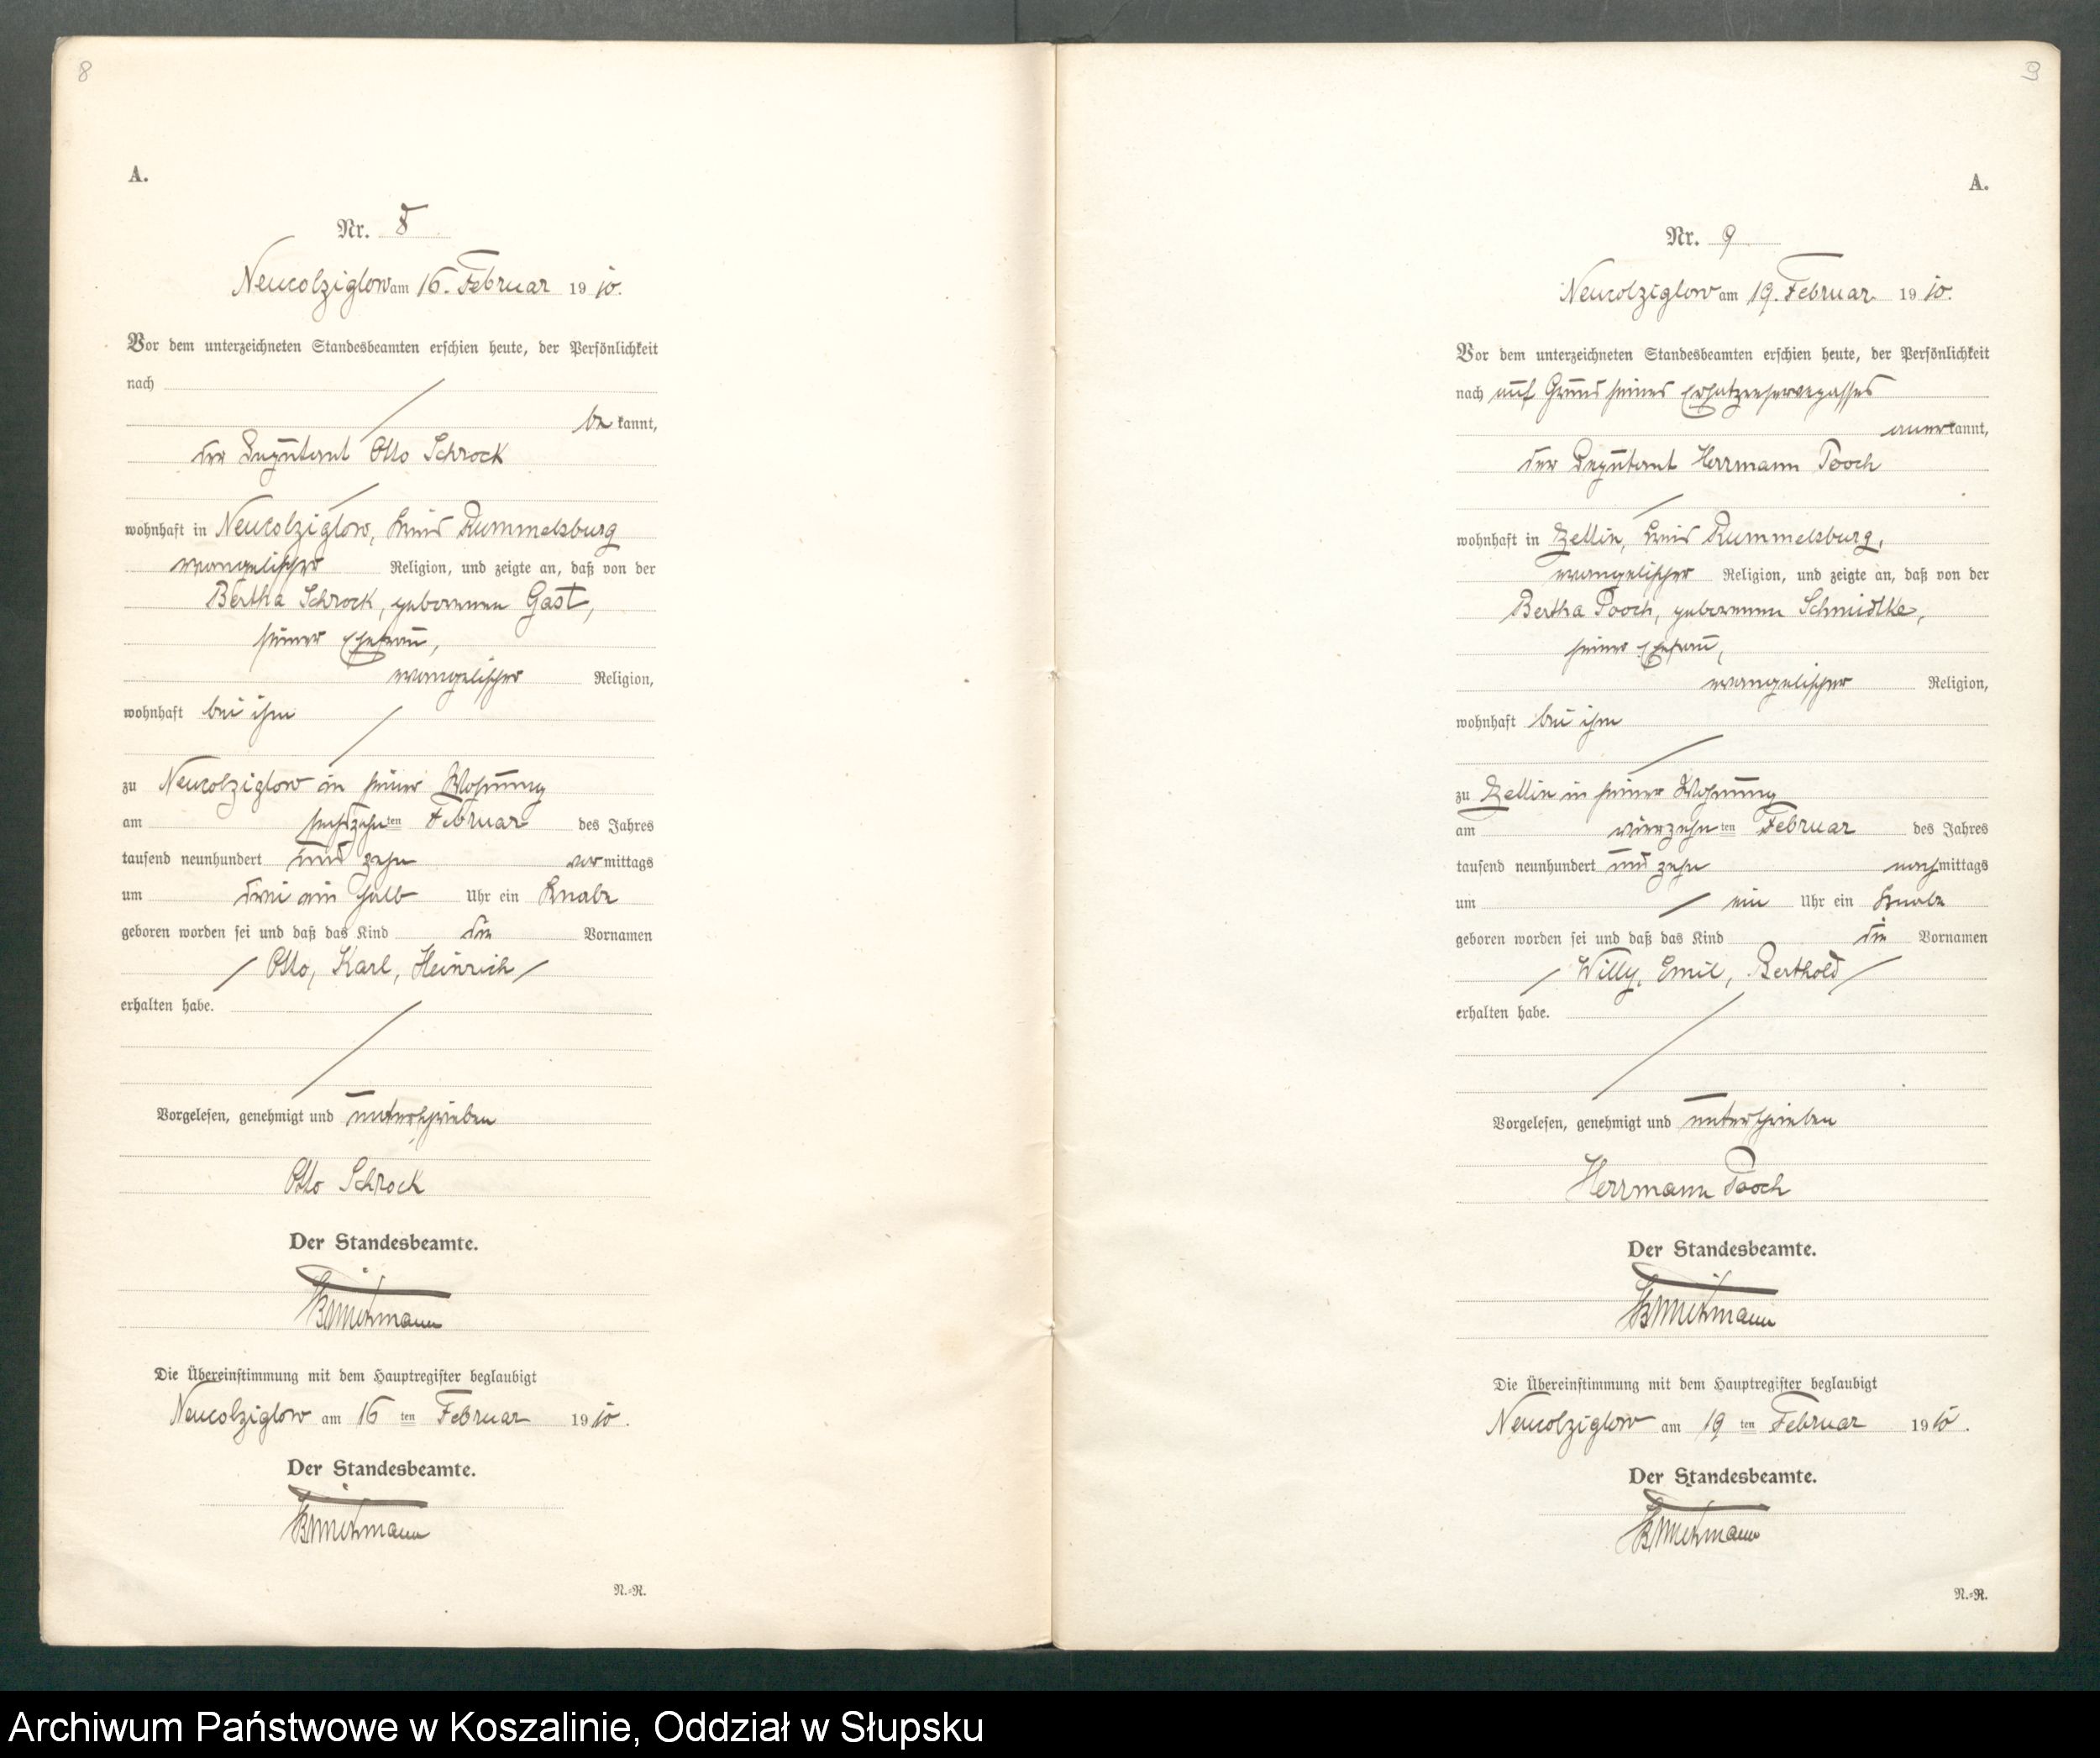 8
A.
Nr. 8
Neucolziglow am 16. Februar 1910.
Vor dem unterzeichneten Standesbeamten erschien heute, der Persönlichkeit
nach
be kannt,
der Deputant Otto Schrock
wohnhaft in Neucolziglow, Kreis Rummelsburg
evangelischer Religion, und zeigte an, daß von der
Bertha Schrock, geborenen Gast,
seiner Ehefrau,
evangelischer Religion,
wohnhaft bei ihm
zu Neucolziglow in seiner Wohnung
am sechszehnten Februar des Jahres
tausend neunhundert und zehn vormittags
um drei ein halb Uhr ein Knabe
geboren worden sei und daß das Kind die Vornamen
Otto, Karl, Heinrich
erhalten habe.
Vorgelesen, genehmigt und unterschrieben
Otto Schrock
Der Standesbeamte.
Die Übereinstimmung mit dem Hauptregister beglaubigt
Neucolziglow am 16 ten Februar 1910.
Der Standesbeamte.
N.-R.
9
A.
Nr. 9
Neucolziglow am 19. Februar 1910.
Vor dem unterzeichneten Standesbeamten erschien heute, der Persönlichkeit
nach auf Grund seines Ersatzreservepasses
anerkannt,
der Deputant Herrmann Pooch
wohnhaft in Zettin, Kreis Rummelsburg,
evangelischer Religion, und zeigte an, daß von der
Bertha Pooch, geborenen Schmidtke,
seiner Ehefrau,
evangelischer Religion,
wohnhaft bei ihm
zu Zettin in seiner Wohnung
am vierzehnten Februar des Jahres
tausend neunhundert und zehn nachmittags
um ein Uhr ein Knabe
geboren worden sei und daß das Kind die Vornamen
Willy, Emil, Berthold
erhalten habe.
Vorgelesen, genehmigt und unterschrieben
Herrmann Pooch
Der Standesbeamte.
Die Übereinstimmung mit dem Hauptregister beglaubigt
Neucolziglow am 19 ten Februar 1910.
Der Standesbeamte.
N.-R.
Archiwum Państwowe w Koszalinie, Oddział w Słupsku